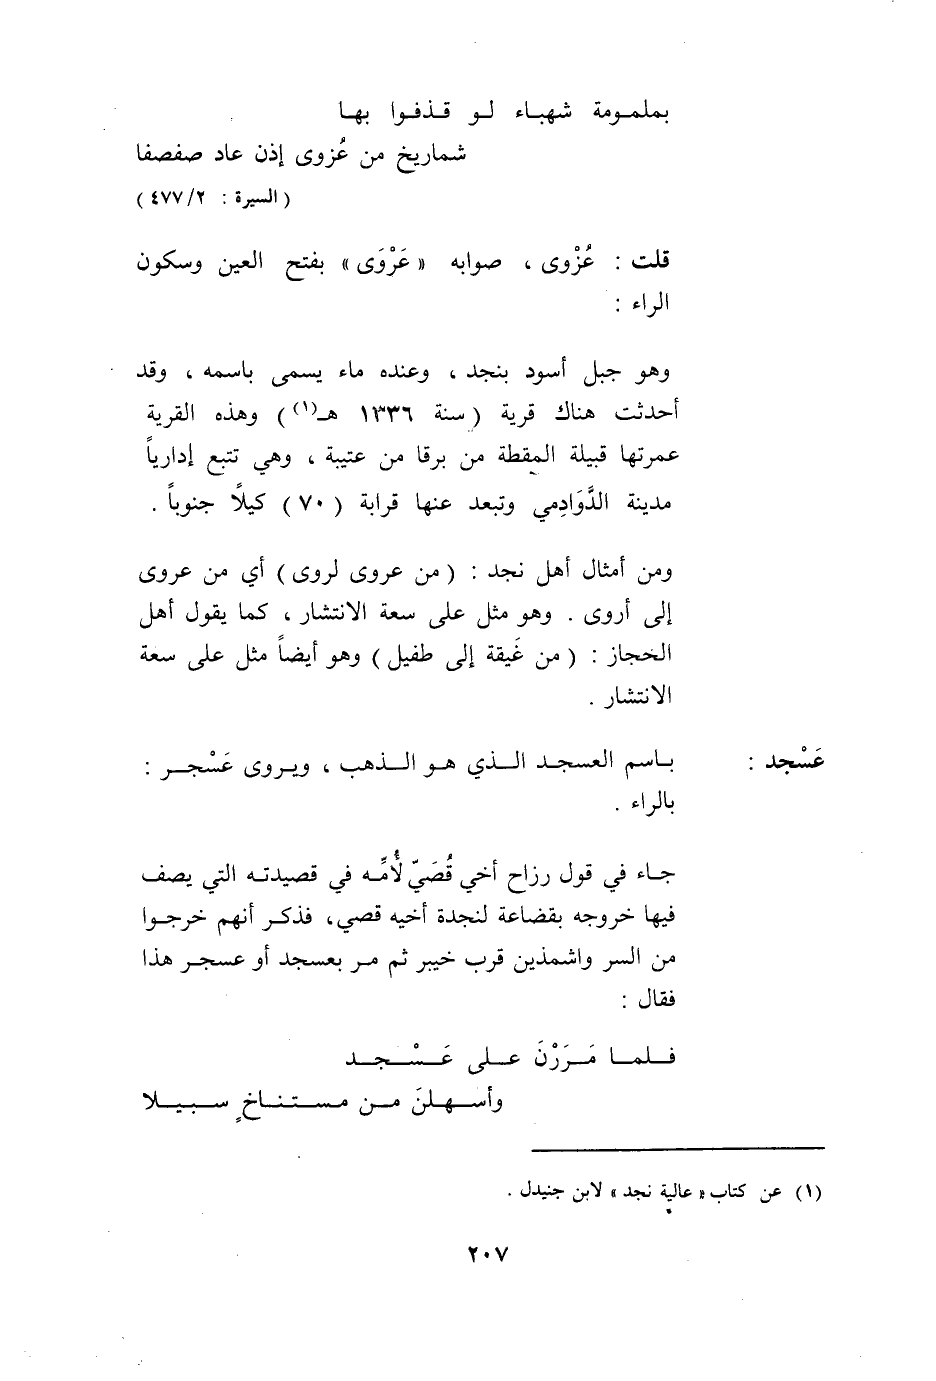 بملمومة شهباء لو قذفوا بها
شماريخ من عُزوى إذن عاد صفصفا
( السيرة : ٤٧٧/٢ )
قلت : عُزْوى ، صوابه « عَرْوَى » بفتح العين وسكون
الراء :
وهو جبل أسود بنجد ، وعنده ماء يسمى باسمه ، وقد
أحدثت هناك قرية ( سنة ١٣٣٦ هـ(١) ) وهذه القرية
عمرتها قبيلة المقطة من برقا من عتيبة ، وهي تتبع إدارياً
مدينة الدَّوَادِمي وتبعد عنها قرابة ( ٧٠ ) كيلًا جنوباً .
ومن أمثال أهل نجد : ( من عروى لروى ) أي من عروى
إلى أروى . وهو مثل على سعة الانتشار ، كما يقول أهل
الحجاز : ( من غَيقة إلى طفيل ) وهو أيضاً مثل على سعة
الانتشار .
عَسْجد : باسم العسجد الذي هو الذهب ، ويروى عَسْجر :
بالراء .
جاء في قول رزاح أخي قُصَيّ لأُمِّه في قصيدته التي يصف
فيها خروجه بقضاعة لنجدة أخيه قصي، فذكر أنهم خرجوا
من السر واشمذين قرب خيبر ثم مر بعسجد أو عسجر هذا
فقال :
فلما مَرَرْنَ على عَسْجد
وأسهلنَ من مستناخٍ سبيلا
(١) عن كتاب « عالية نجد » لابن جنيدل .
٢٠٧